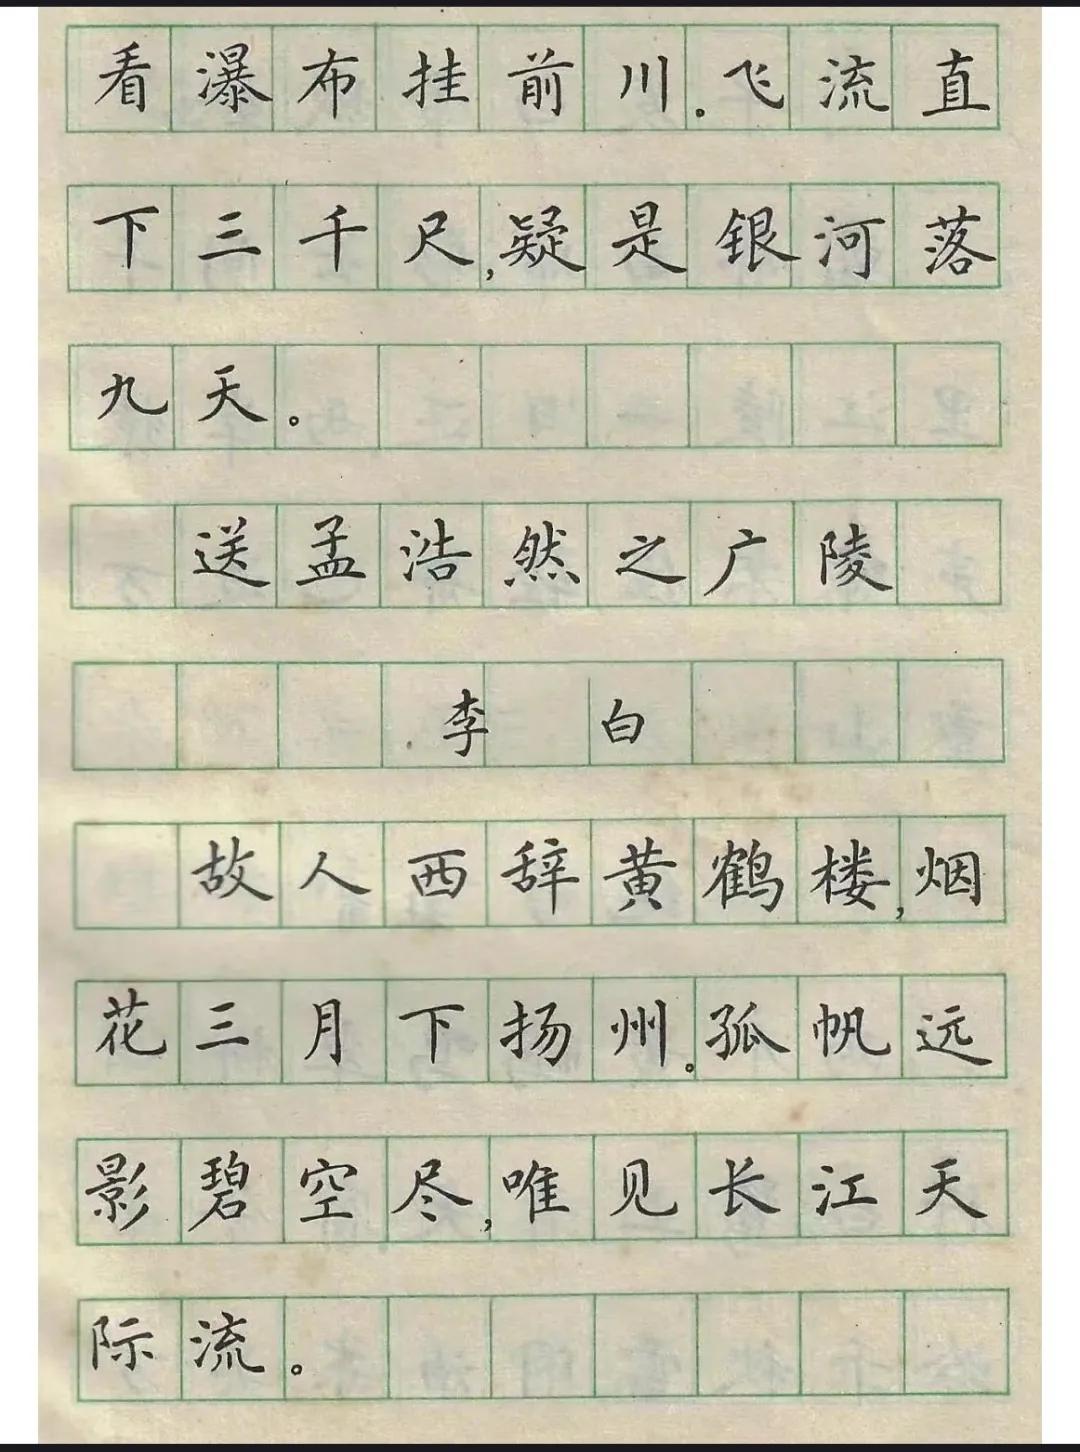 看瀑布挂前川。飞流直
下三千尺,疑是银河落
九天。
送孟浩然之广陵
李 白
故人西辞黄鹤楼,烟
花三月下扬州。孤帆远
影碧空尽,唯见长江天
际流。